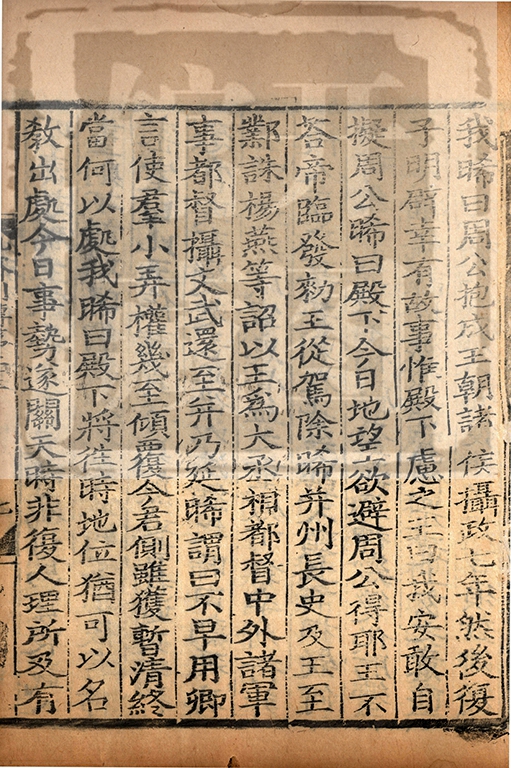 我晞曰周公抱成王朝諸侯攝政七年然後復
子明辟幸有故事惟殿下慮之王曰我安敢自
擬周公晞曰殿下今日地望欲避周公得耶王不
荅帝臨發勑王從駕除晞并州長史及王至
鄴誅楊燕等詔以王爲大丞相都督中外諸軍
事都督攝文武還至并乃延晞謂曰不早用卿
言使羣小弄權幾至傾覆今君側雖獲暫清終
當何以處我晞曰殿下將往時地位猶可以名
教出處今日事勢遂關天時非復人理所及有